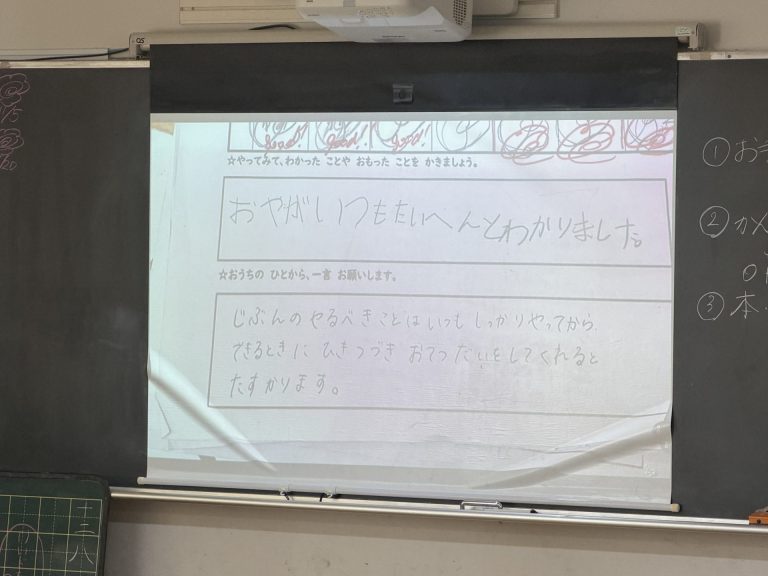 good!!
good!!
good!!
☆やってみて、わかった ことや おもった ことを かきましょう。
おやがいつもたいへんとわかりました。
☆おうちの ひとから、一言 お願いします。
じぶんの やるべきことは いつも しっかりやってから
できるときに ひきつづき おてつだいをしてくれると
たすかります。
①お
②かん
③本